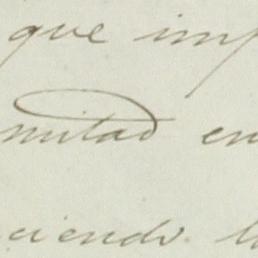 que imp
mitad en
ciendo l